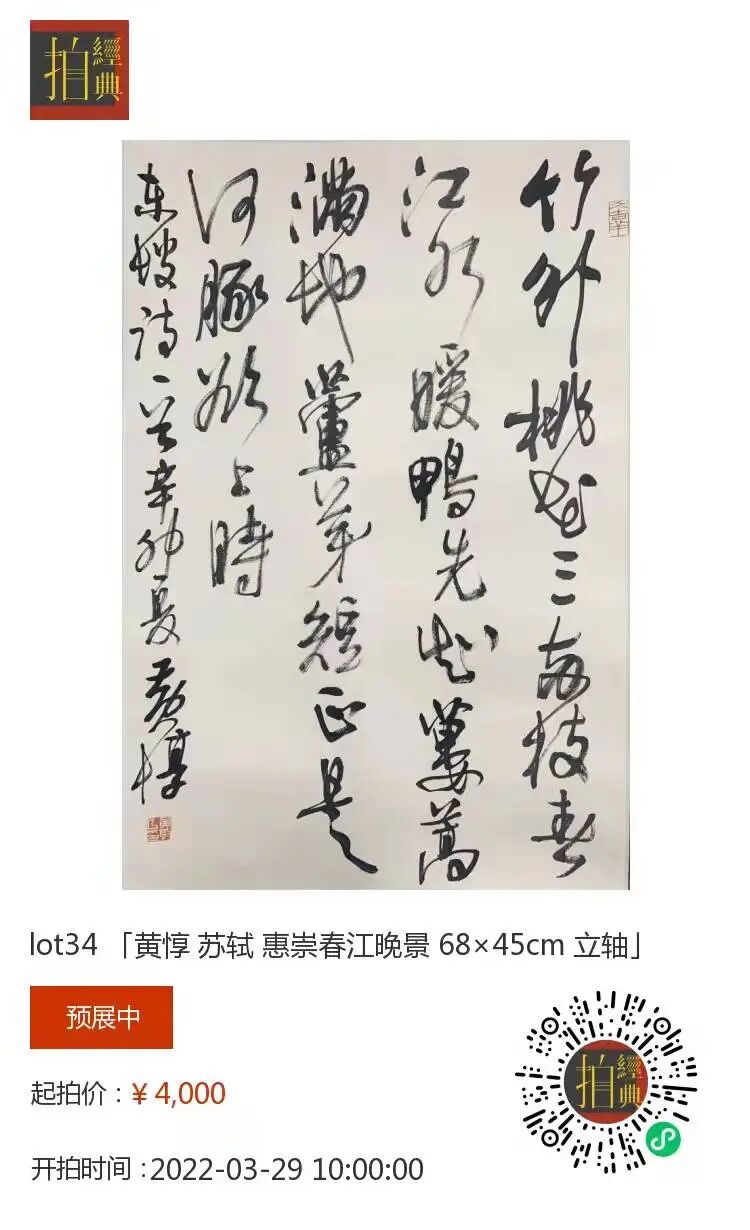 經典
拍
竹外桃花三兩枝春
江水暖鴨先知蔞蒿
滿地蘆芽短正是
河豚欲上時
东坡诗一首辛卯夏黄惇
lot34 「黄惇 苏轼 惠崇春江晚景 68×45cm 立轴」
预展中
起拍价：¥ 4,000
开拍时间：2022-03-29 10:00:00
經典
拍